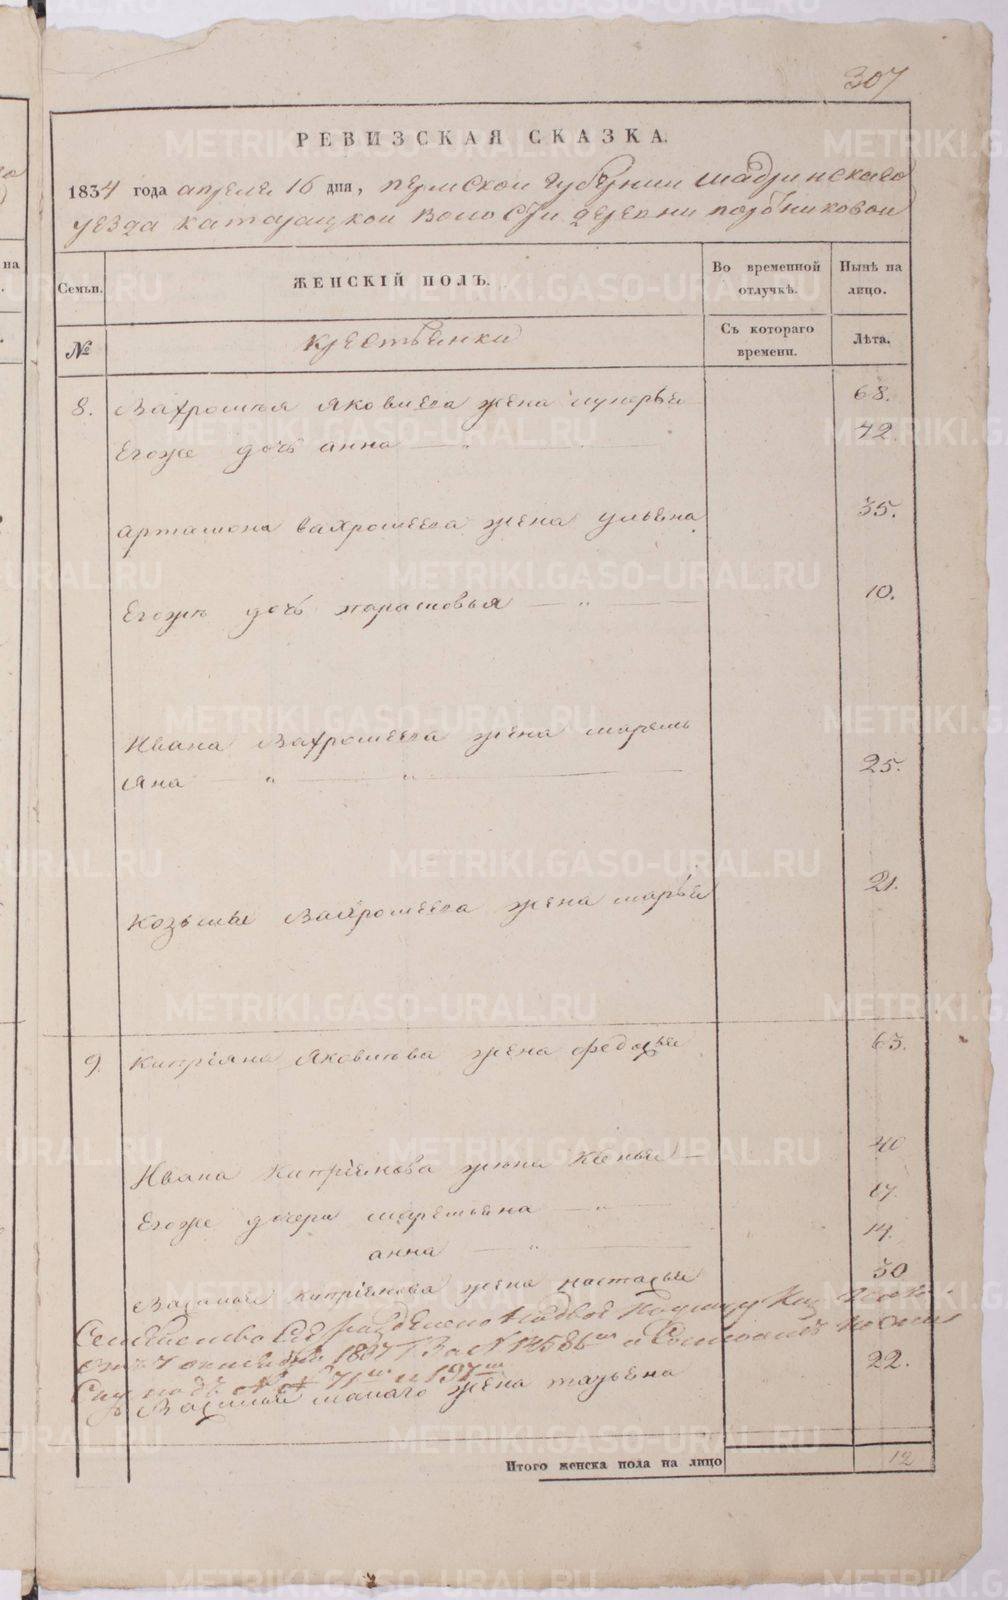 307
РЕВИЗСКАЯ СКАЗКА.
1834 года апреля 16 дня, пермской губернии шадринскаго
уезда катайцкой волости деревни
Семьи. ЖЕНСКІЙ ПОЛЪ. Во временной отлучкѣ. Нынѣ на лицо.
№ крестьянки Съ котораго времени. Лѣта.
8. Вахромея Яковлева жена лукерья 68.
Егоже дочь анна — „ — 42.
арташона вахромеева жена ульяна 35.
Егоже дочь парасковья — „ — 10.
Ивана Вахромеева жена маремь
яна — „ — „ — 25.
козьмы Вахромеева жена марья 21.
9. кипріяна Яковлева жена федосья 63.
Ивана кипріянова жена 40
Егоже дочери маремьяна — „ — 17.
анна — „ — 14.
кипріянова жена настасья 30
Семейство Сіе разделено надвое
1837 За № 14586м и
№ № 71м и 197м
малаго жена татьяна 22.
Итого женска пола на лицо 12
METRIKI.GASO-URAL.RU